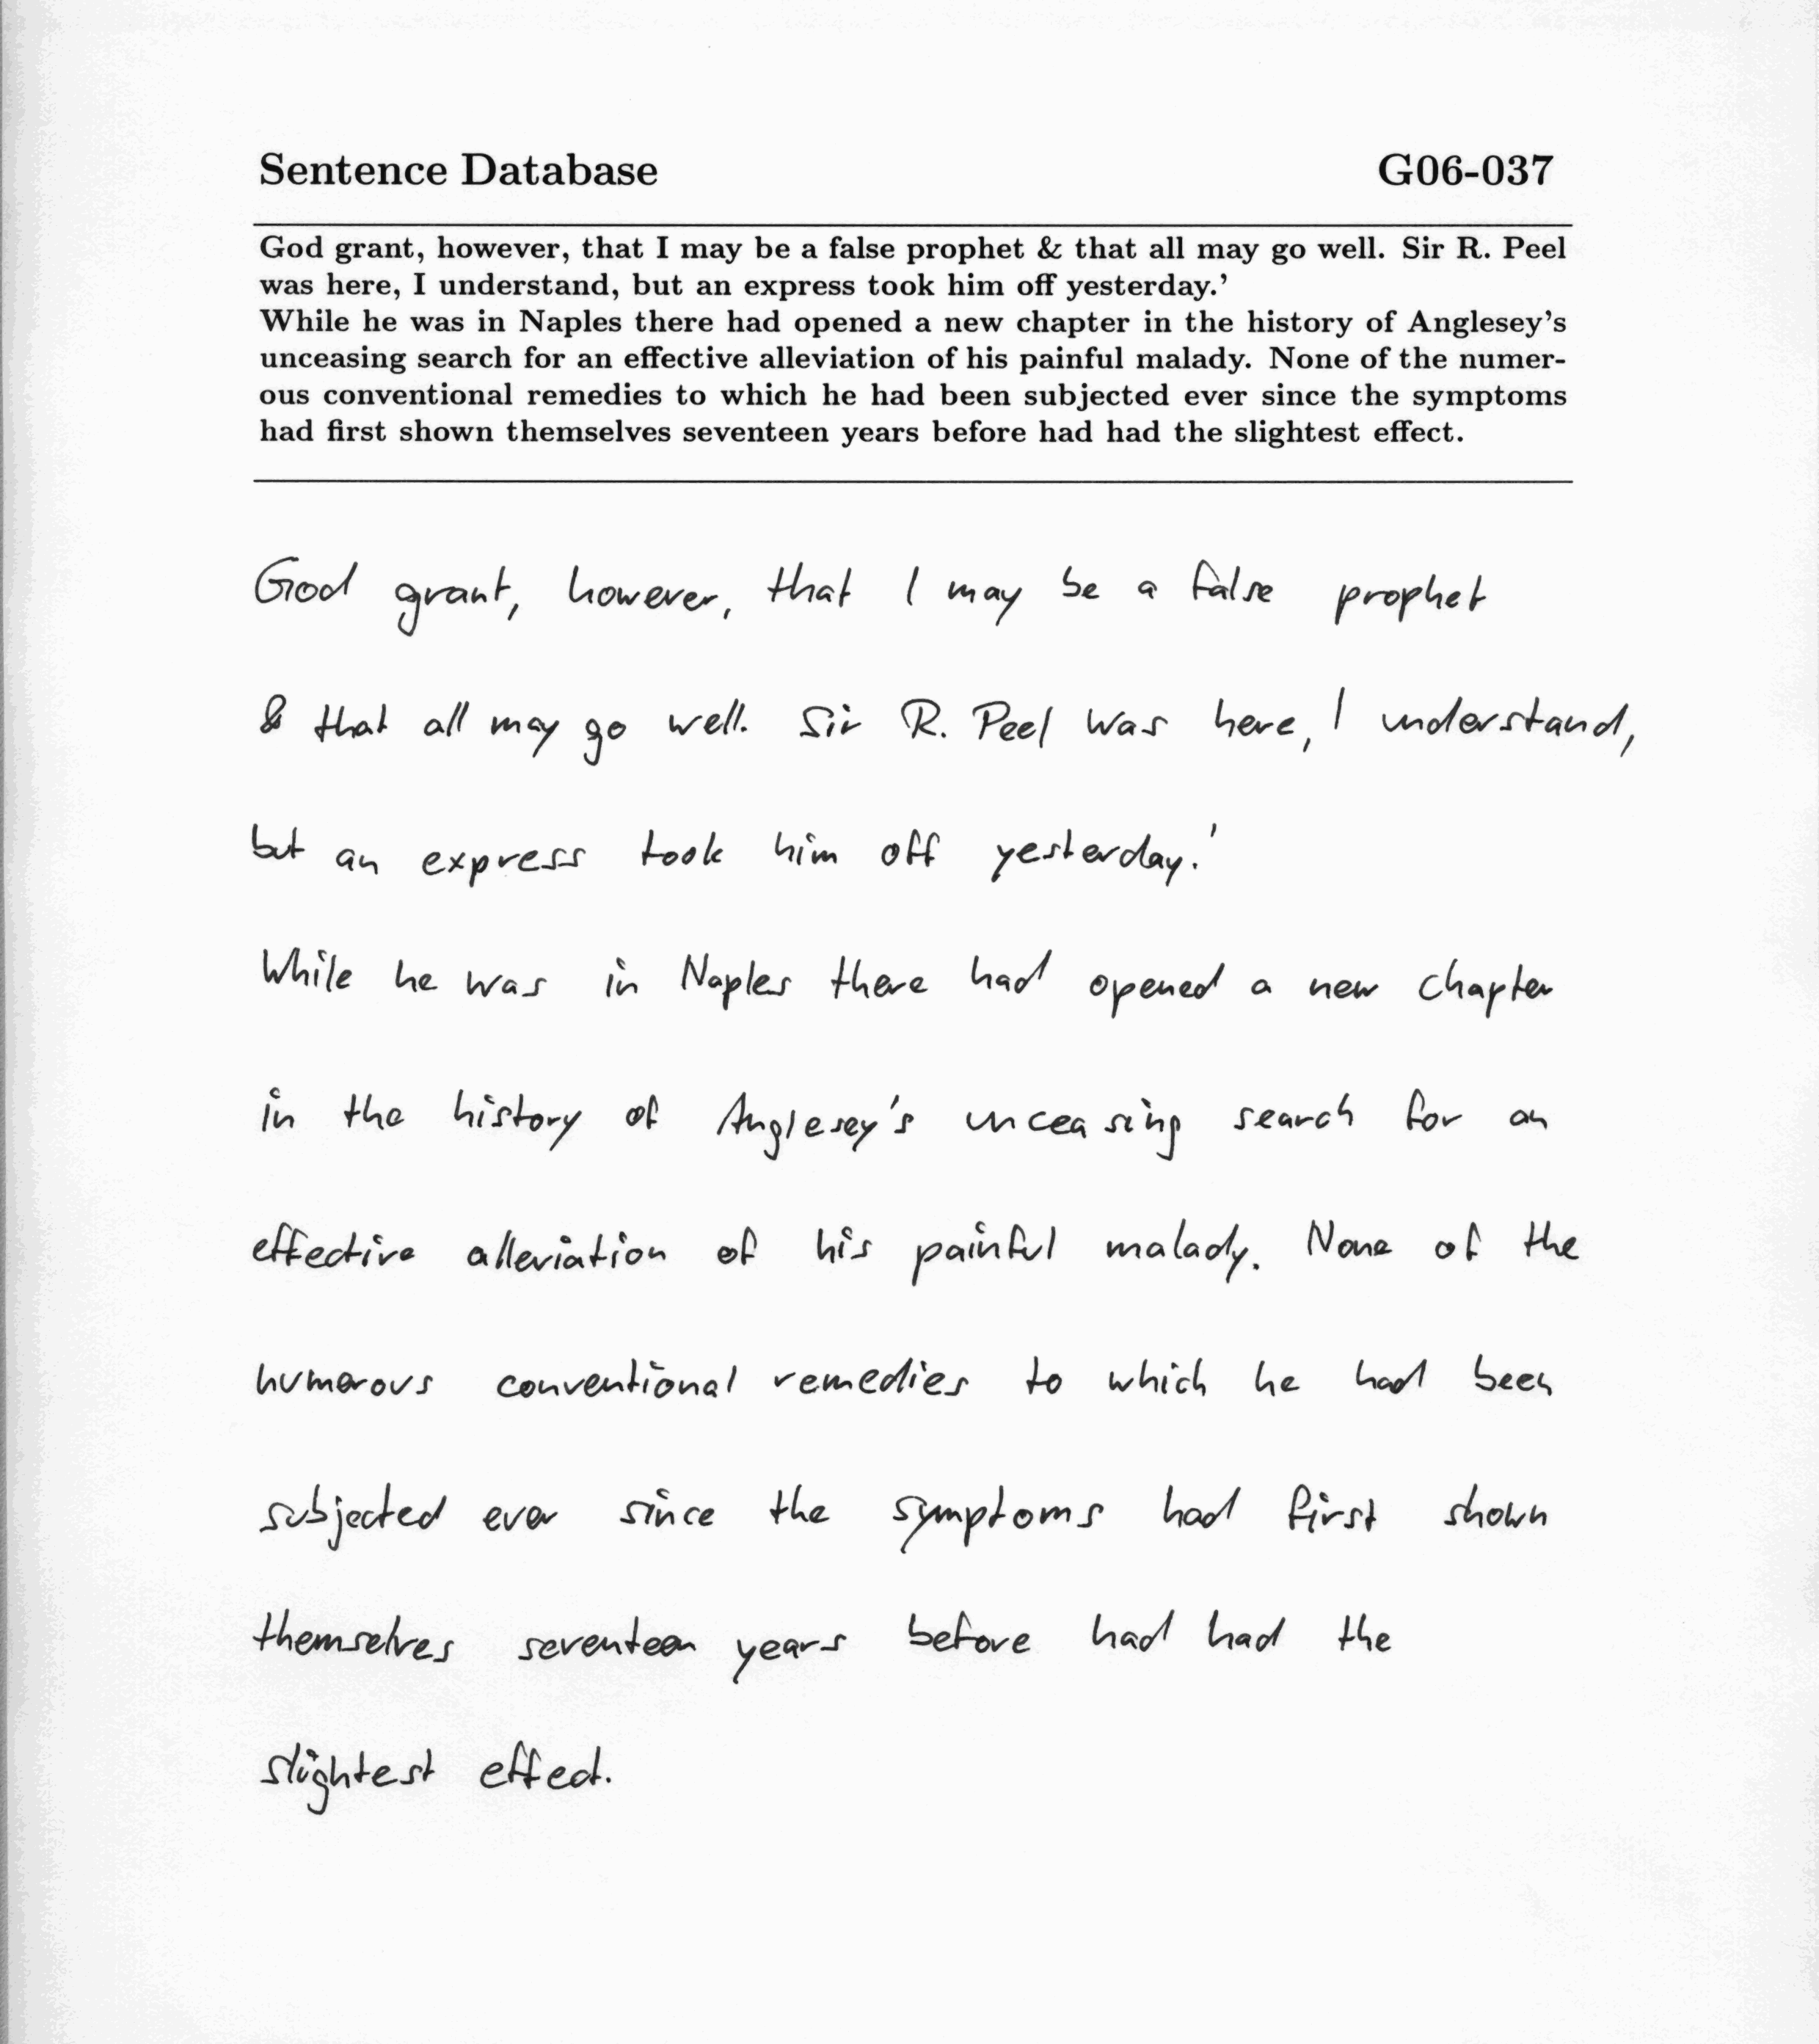 Sentence Database G06-037
God grant, however, that I may be a false prophet & that all may go well. Sir R. Peel
was here, I understand, but an express took him off yesterday.'
While he was in Naples there had opened a new chapter in the history of Anglesey's
unceasing search for an effective alleviation of his painful malady. None of the numer-
ous conventional remedies to which he had been subjected ever since the symptoms
had first shown themselves seventeen years before had had the slightest effect.
God grant, however, that I may be a false prophet
& that all may go well. Sir R. Peel was here, I understand,
but an express took him off yesterday.'
While he was in Naples there had opened a new chapter
in the history of Anglesey's unceasing search for an
effective alleviation of his painful malady. None of the
humerous conventional remedies to which he had been
subjected ever since the symptoms had first shown
themselves seventeen years before had had the
slightest effect.